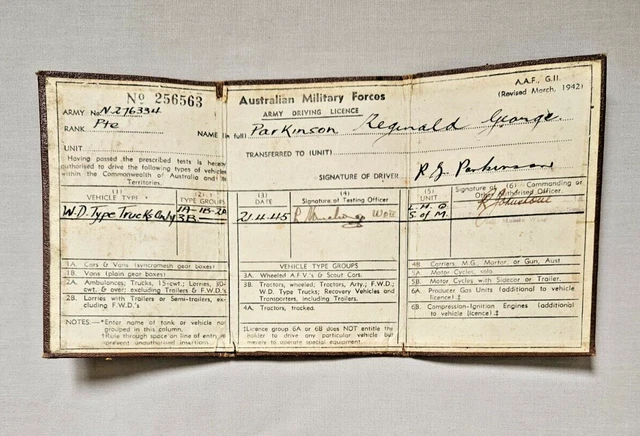 No 256563
Australian Military Forces
A.A.F., G.11.
(Revised March, 1942)
ARMY DRIVING LICENCE
ARMY No. N276334
RANK Pte
NAME (in full) Parkinson Reginald George.
UNIT
TRANSFERRED TO (UNIT)
Having passed the prescribed tests is hereby
authorised to drive the following types of vehicles
within the Commonwealth of Australia and its
Territories.
SIGNATURE OF DRIVER R G Parkinson
(1)
VEHICLE TYPE *
(2)
(3)
DATE
(4)
Signature of Testing Officer
(5)
UNIT
(6)
Signature of Commanding or
Authorised Officer.
W.D. Type Trucks Only 1A-1B-2A
3B
21.4.45
L.H.Q
S of M.
1A Cars & Vans (syncromesh gear boxes)
1B. Vans (plain gear boxes)
2A. Ambulances; Trucks, 15-cwt.; Lorries, 30-
cwt. & over; excluding Trailers & F.W.D's.
2B. Lorries with Trailers or Semi-trailers, ex-
cluding F.W.D's.
NOTES:—*Enter name of tank or vehicle not
grouped in this column.
†Rule through space on line of entry to
prevent unauthorised insertions.
VEHICLE TYPE GROUPS
3A. Wheeled A.F.V.'s & Scout Cars.
3B. Tractors, wheeled; Tractors, Arty.; F.W.D.;
W.D. Type Trucks; Recovery Vehicles and
Transporters, including Trailers.
4A. Tractors, tracked.
‡Licence group 6A or 6B does NOT entitle the
holder to drive any particular vehicle but
merely to operate special equipment.
4B Carriers, M.G., Mortar, or Gun, Aust.
5A Motor Cycles, solo.
5B. Motor Cycles with Sidecar or Trailer.
6A Producer Gas Units (additional to vehicle
licence) ‡
6B. Compression-Ignition Engines (additional
to vehicle licence) ‡